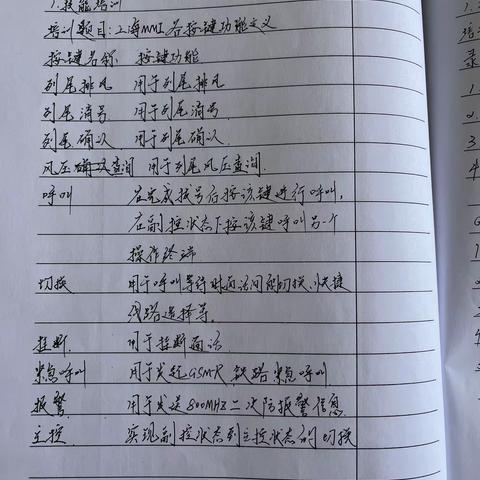 1.技能培训
培训题目:上海MMI各按键功能定义
按键名称 按键功能
列尾排风 用于列尾排风
列尾消号 用于列尾消号
列尾确认 用于列尾确认
风压查询 用于列尾风压查询
呼叫 在完成拨号后按该键进行呼叫,
在副控状态下按该键呼叫另一个
操作终端
切换 用于呼叫等待时两话间的切换、快捷
线路选择等。
挂断 用于挂断通话
紧急呼叫 用于发起GSMR铁路紧急呼叫
报警 用于发送800MHZ二次防报警信息
主控 实现副控状态到主控状态的切换